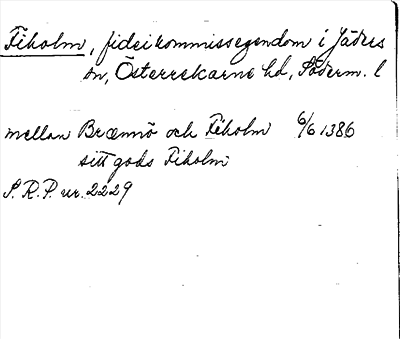 Fiholm, fideikommissegendom i Jäders
sn, Österrekarne hd, Söderm. l
mellan Brænnö och Fiholm 6/6 1386
sitt gods Fiholm
S. R. P. nr. 2229